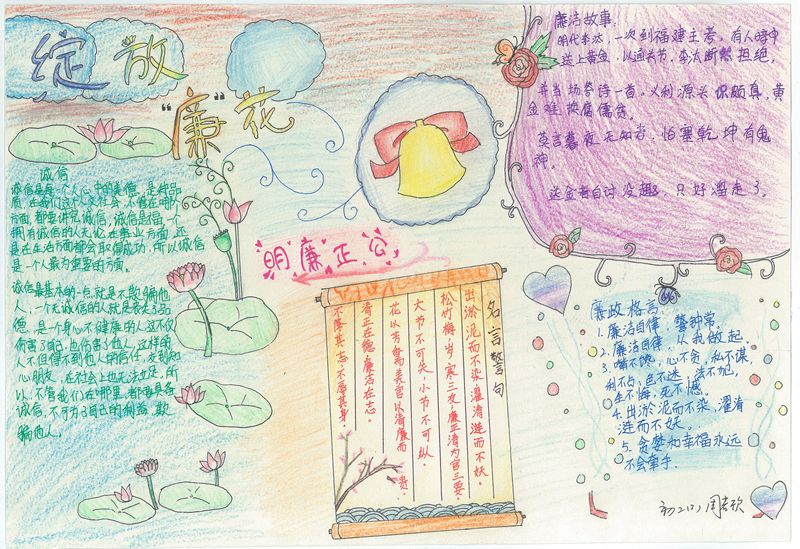 绽放
“廉”花
诚信
诚信是每个人心中的美德,是种品
质,在我们这个人文社会,不管在哪个
方面,都要讲究诚信,诚信是福,一个
拥有诚信的人无论在事业方面,还
是在生活方面都会取得成功,所以诚信
是一个人最为重要的方面。
诚信最基本的一点就是不欺骗他
人,一个无诚信的人就是丧失了品
德,是一个身心不健康的人,这不仅
伤害了自己,也伤害了他人,这样的
人不但得不到他人的信任,交到知
心朋友,在社会上也无法立足,所
以,不管我们在哪里,都要具备
诚信,不可为了自己的利益,欺
骗他人。
明廉正公
名言警句
出淤泥而不染,濯清涟而不妖。
松竹梅,岁寒三友,廉正清为官三要。
大节不可失,小节不可纵.
花以芳馨美官以清廉而贵.
清正在德,廉洁在志。
不降其志,不辱其身.
廉洁故事.
明代李汰,一次到福建主考,有人暗中
送上黄金,以通关节,李汰断然拒绝,
并当场眷诗一首,义利源头识颇真,黄
金难换腐儒贫.
莫言暮夜无知者,怕塞乾坤有鬼
神.
送金者自讨没趣,只好溜走了.
廉政格言.
1.廉洁自律,警钟常
2.廉洁自律,从我做起.
3.嘴不馋,心不贪,私不谋,
利不占,色不迷,法不犯,
生不悔,死不憾.
4.出淤泥而不染,濯清
涟而不妖.
5.贪婪和幸福永远
不会牵手.